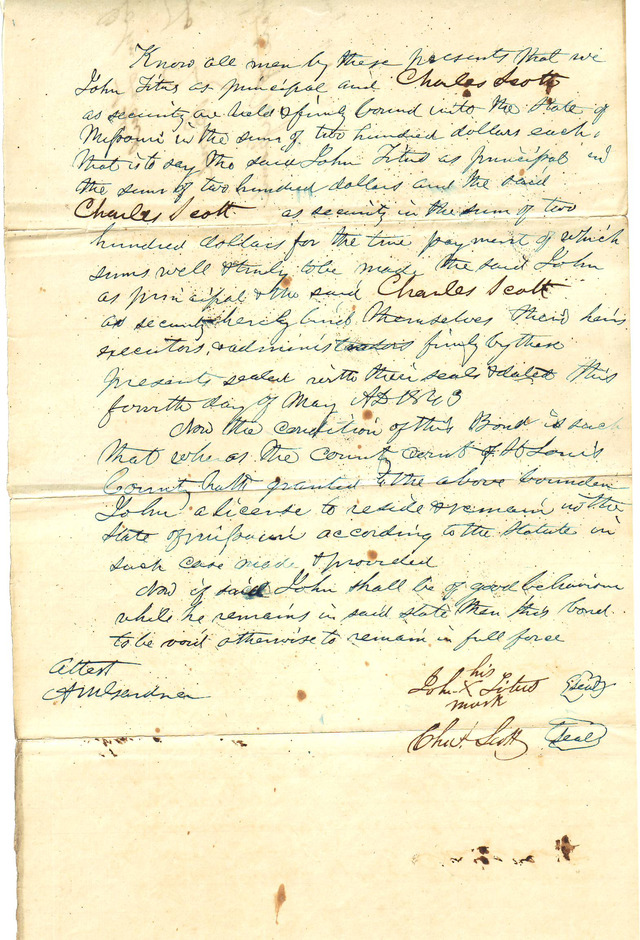 Know all men by these presents that we
John Titus as principal and Charles Scott
as security are held & firmly bound unto the State of
Missouri in the sum of two hundred dollars each,
that is to say the said John Titus as principal in
the sum of two hundred dollars and the said
Charles Scott as security in the sum of two
hundred dollars for the true payment of which
sums well & truly to be made the said John
as principal & the said Charles Scott
as security hereby bind themselves their heirs
executors, & administrators firmly by these
presents sealed with their seals & dated this
fourth day of May AD 1843
Now the condition of this Bond is such
that whereas the county court of St Louis
County hath granted to the above bounden
John a license to reside & remain in the
State of Missouri according to the Statute in
such case made & provided
Now if said John shall be of good behaviour
while he remains in said state then this bond
to be void otherwise to remain in full force
Attest
A M Gardner
his
John X Titus seal
mark
Chas Scott seal